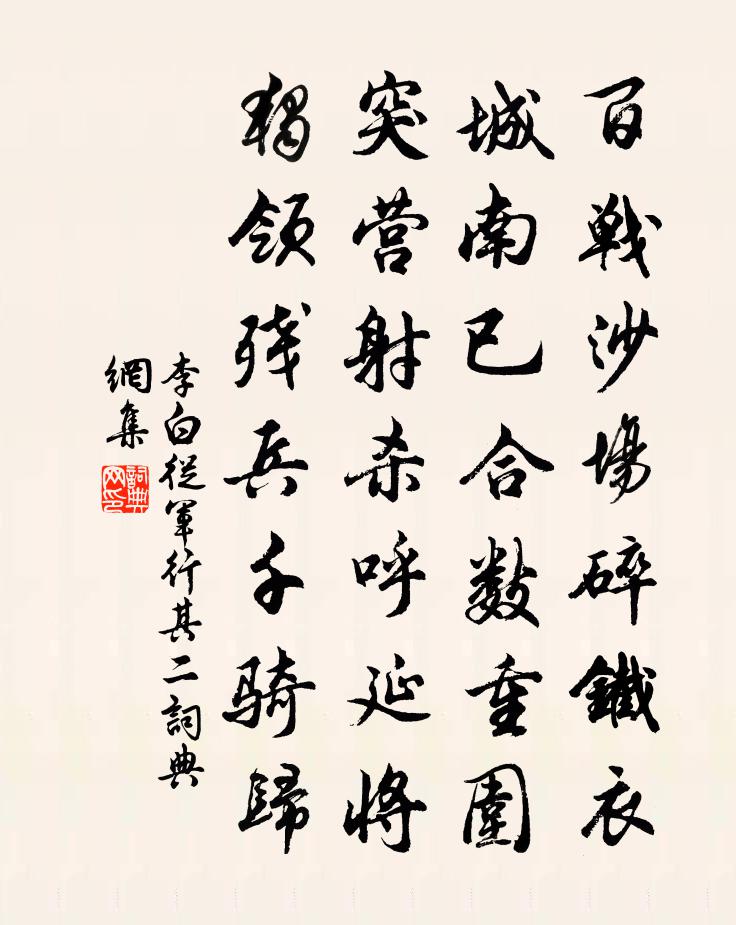 百戰沙場碎鐵衣
城南已合數重圍
突营射杀呼延將
獨領殘兵千騎歸
李白從軍行其二詞典
網集
詞典
网印